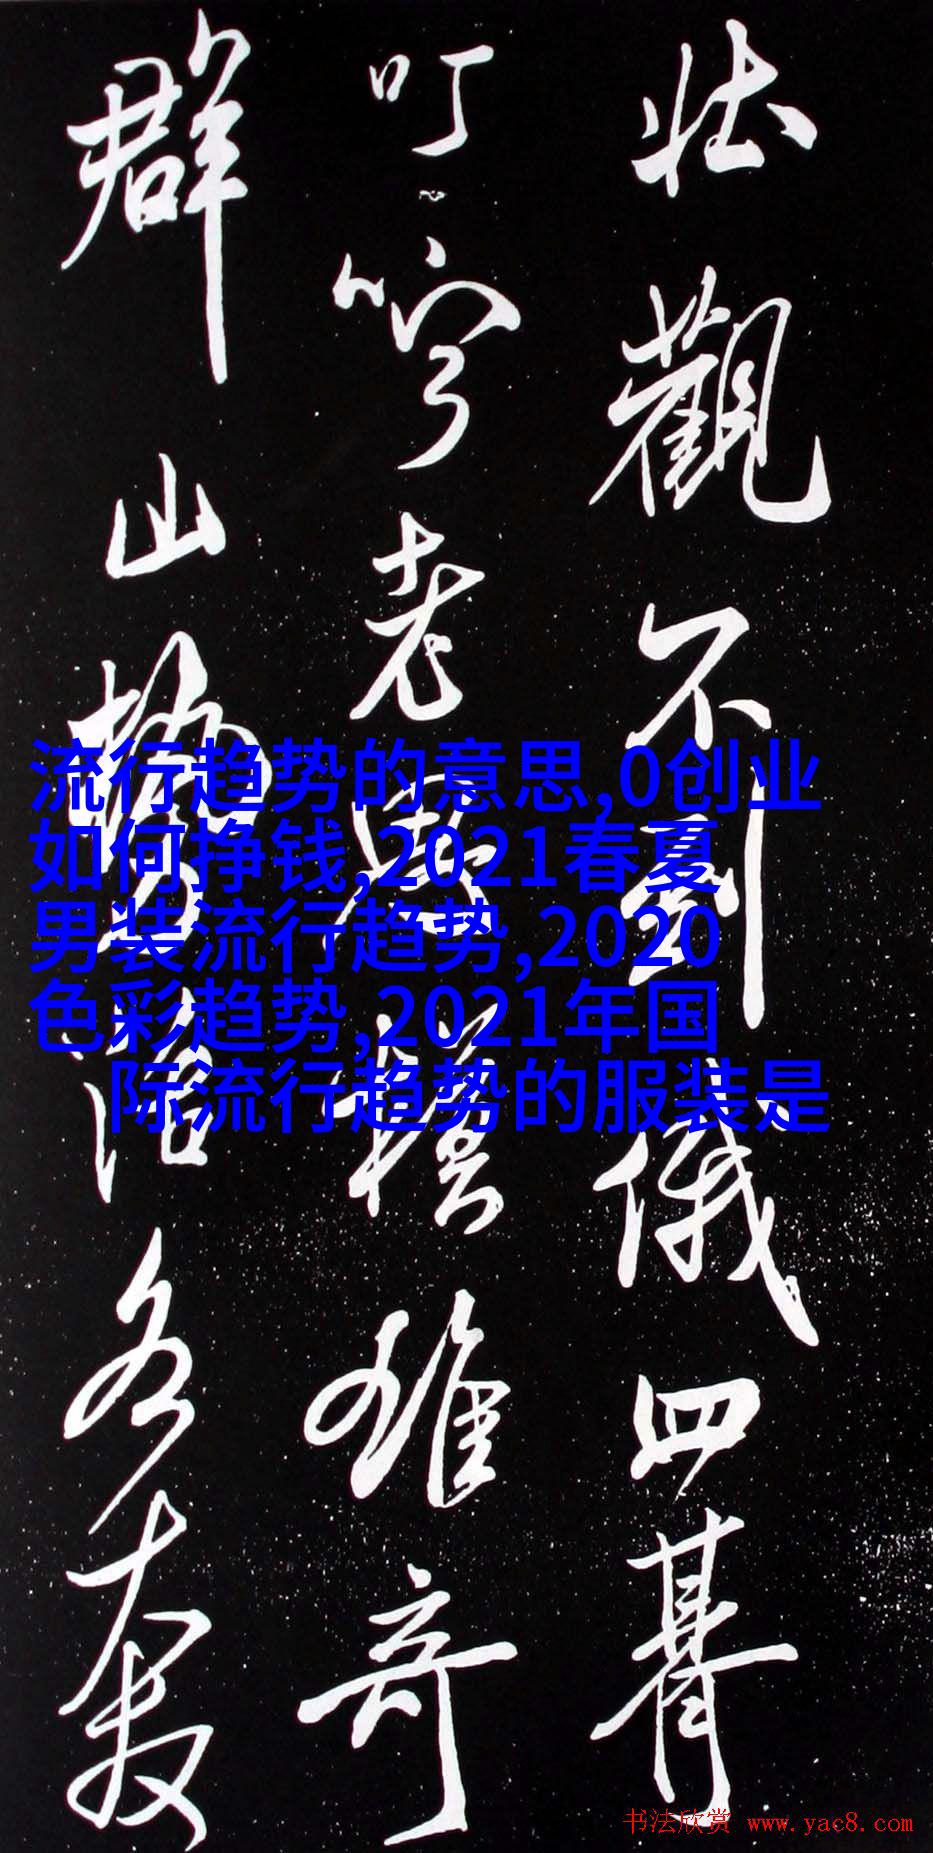 壯觀不到四
叮嚀老思雄奇
群山勢各奔
流行趋势的意思,0创业
如何挣钱,2021春夏
男装流行趋势,2020
色彩趋势,2021年国
际流行趋势的服装是
书法欣赏 www.yac8.com